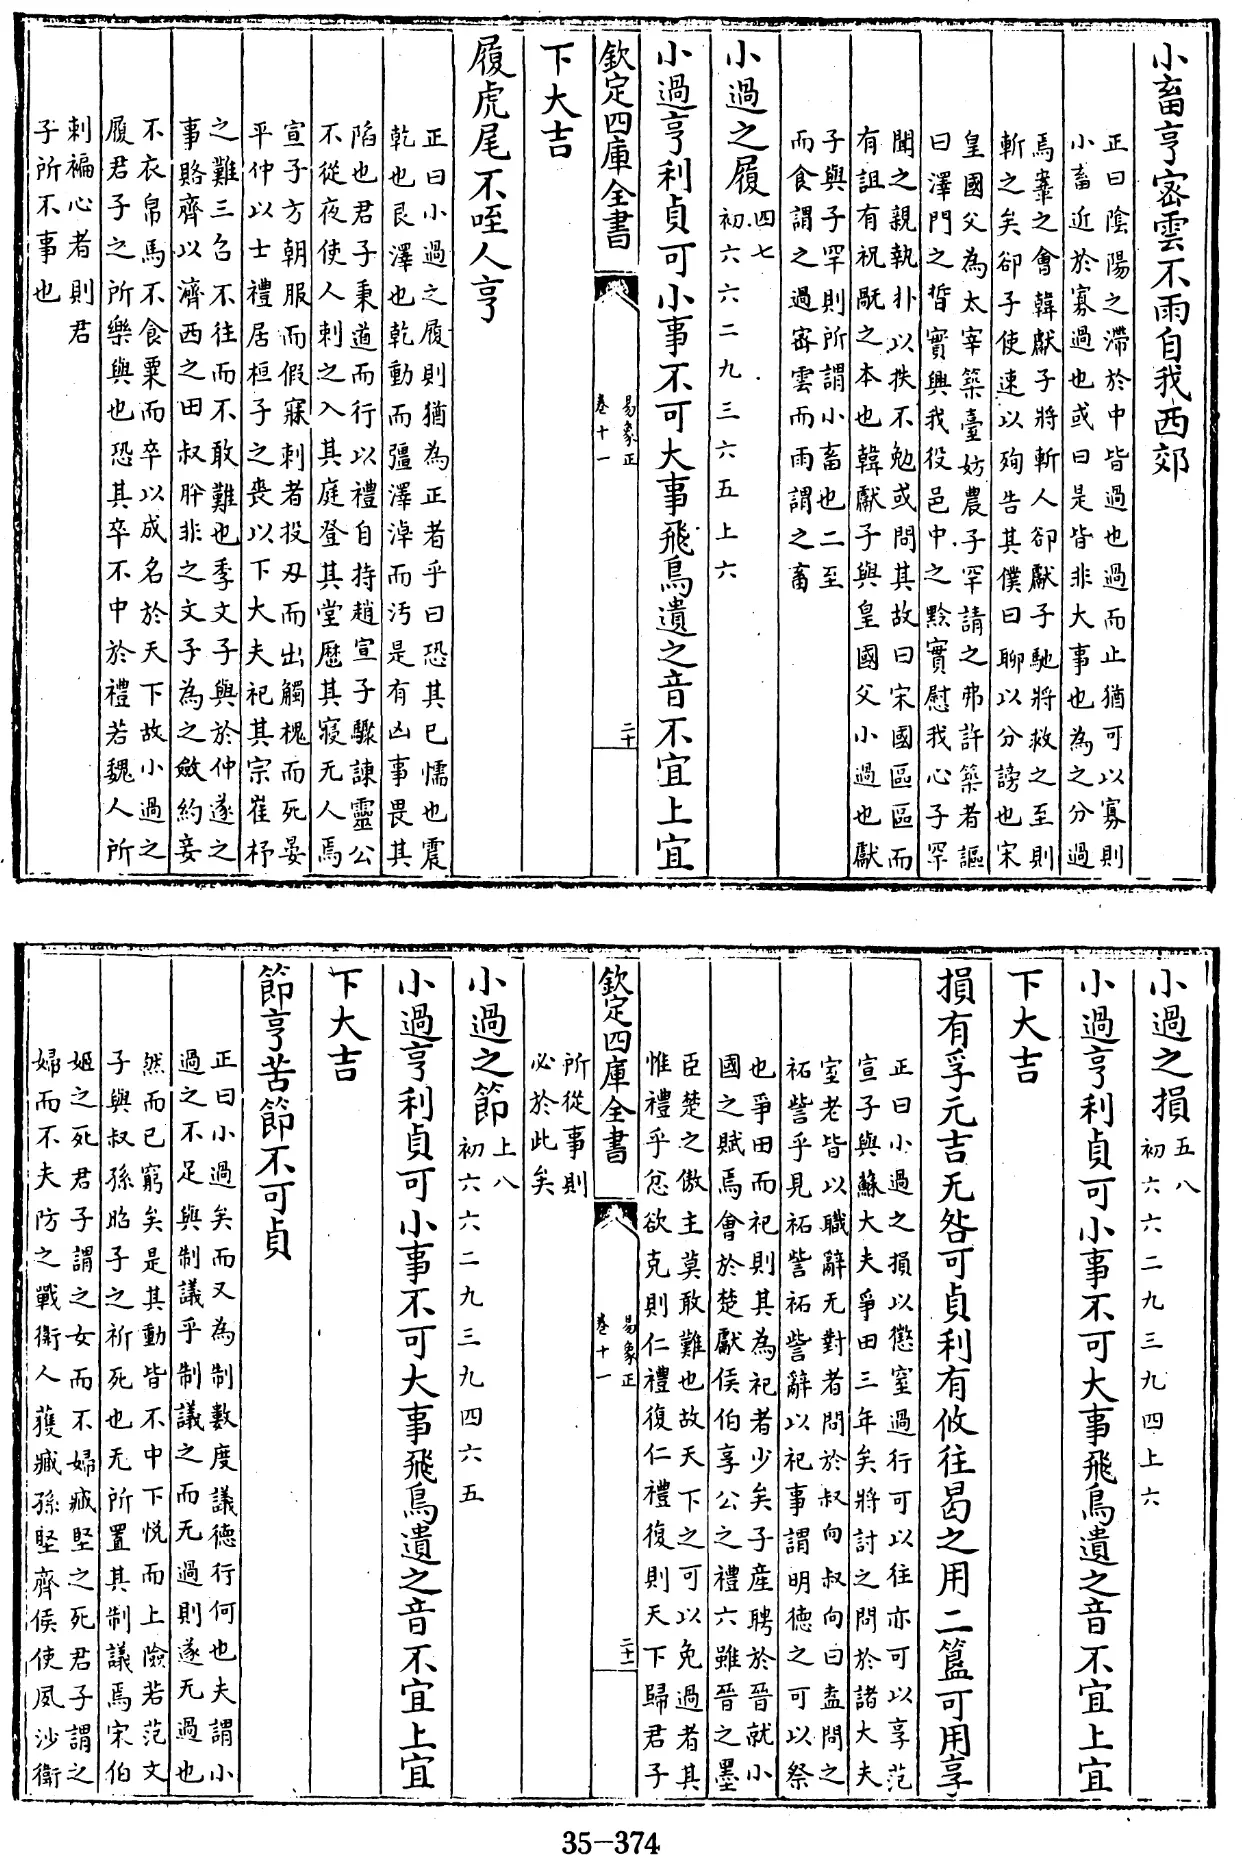 小畜亨密雲不雨自我西郊
正曰陰陽之滯於中皆過也過而止猶可以寡則
小畜近於寡過也或曰是皆非大事也為之分過
焉鞌之會韓獻子將斬人卻獻子馳將救之至則
斬之矣卻子使速以殉告其僕曰聊以分謗也宋
皇國父為太宰築臺妨農子罕請之弗許築者謳
曰澤門之晳實興我役邑中之黔實慰我心子罕
聞之親執扑以抶不勉或問其故曰宋國區區而
有詛有祝厩之本也韓獻子與皇國父小過也獻
子與子罕則所謂小畜也二至
而食謂之過密雲而雨謂之畜
小過之履 四七
初六六二九三六五上六
小過亨利貞可小事不可大事飛鳥遺之音不宜上宜
欽定四庫全書
易象正
卷十一
二十
下大吉
履虎尾不咥人亨
正曰小過之履則猶為正者乎曰恐其已懦也震
乾也艮澤也乾動而彊澤淖而汚是有凶事畏其
陷也君子秉道而行以禮自持趙宣子驟諫靈公
不從夜使人刺之入其庭登其堂歷其寢无人焉
宣子方朝服而假寐刺者投刃而出觸槐而死晏
平仲以士禮居桓子之喪以下大夫祀其宗崔杼
之難三台不往而不敢難也季文子與於仲遂之
事賂齊以濟西之田叔肸非之文子為之斂約妾
不衣帛馬不食粟而卒以成名於天下故小過之
履君子之所樂與也恐其卒不中於禮若魏人所
刺褊心者則君
子所不事也
小過之損 五八
初六六二九三九四上六
小過亨利貞可小事不可大事飛鳥遺之音不宜上宜
下大吉
損有孚元吉无咎可貞利有攸往曷之用二簋可用享
正曰小過之損以懲窒過行可以往亦可以享范
宣子與龢大夫爭田三年矣將討之問於諸大夫
室老皆以職辭无對者問於叔向叔向曰盍問之
祏訾乎見祏訾祏訾辭以祀事謂明德之可以祭
也爭田而祀則其為祀者少矣子產聘於晉就小
國之賦焉會於楚獻侯伯享公之禮六雖晉之墨
臣楚之傲主莫敢難也故天下之可以免過者其
惟禮乎忿欲克則仁禮復仁禮復則天下歸君子
欽定四庫全書
易象正
卷十一
二十一
所從事則
必於此矣
小過之節 上八
初六六二九三九四六五
小過亨利貞可小事不可大事飛鳥遺之音不宜上宜
下大吉
節亨苦節不可貞
正曰小過矣而又為制數度議德行何也夫謂小
過之不足與制議乎制議之而无過則遂无過也
然而已窮矣是其動皆不中下悅而上險若范文
子與叔孫昭子之祈死也无所置其制議焉宋伯
姬之死君子謂之女而不婦臧堅之死君子謂之
婦而不夫防之戰衛人獲臧孫堅齊侯使夙沙衛
35-374